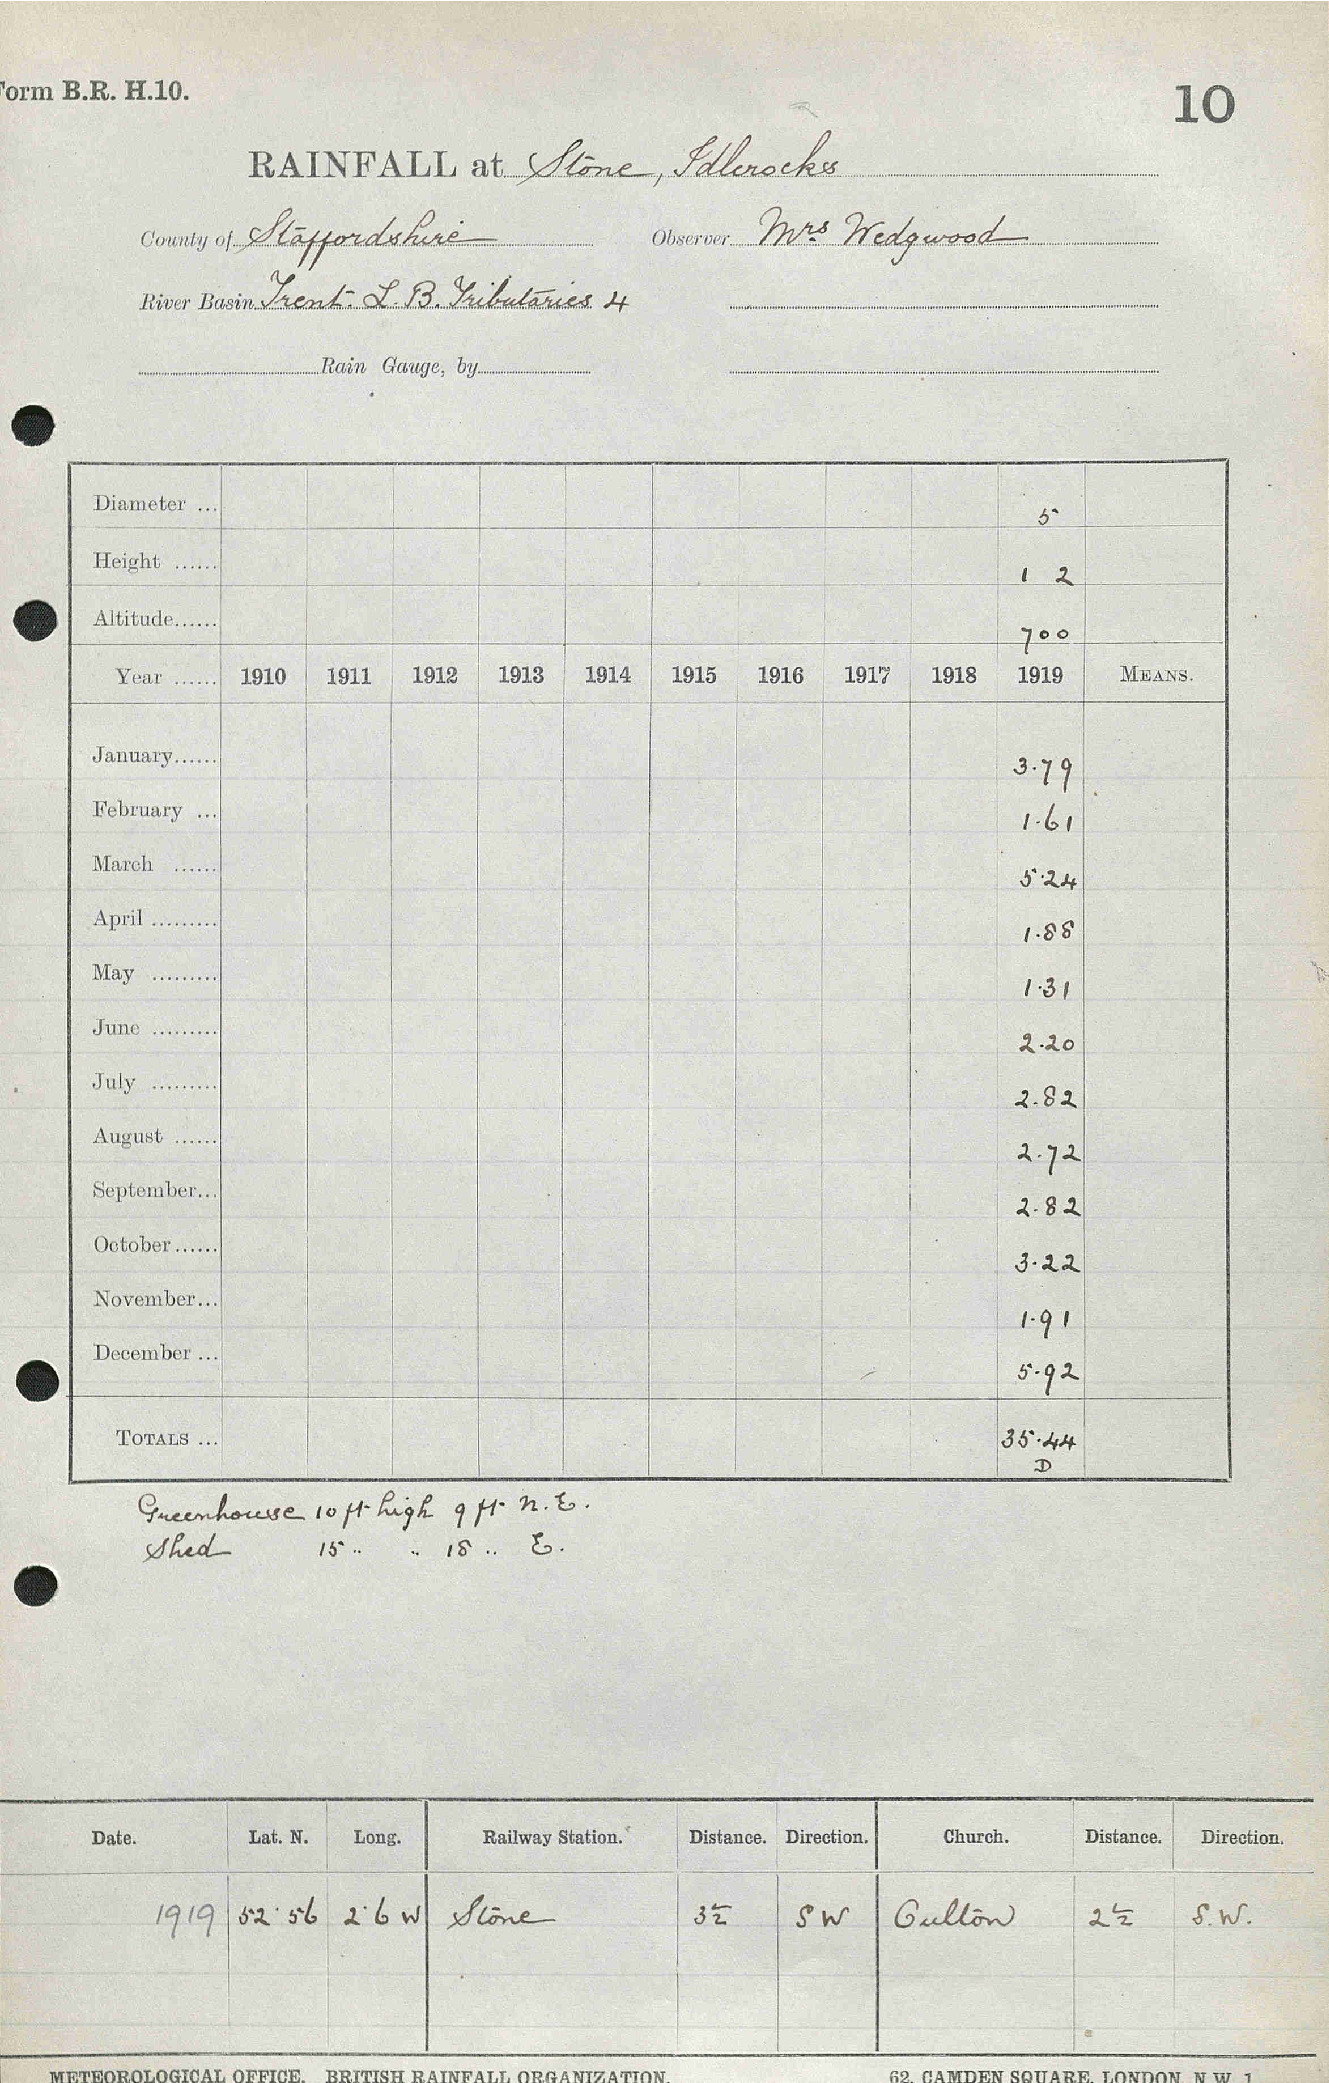 Form B.R. H.10.
10
RAINFALL at Stone, Idlerocks
County of Staffordshire Observer Mrs Wedgwood
River Basin Trent. L. B. Tributaries 4
Rain Gauge, by
Diameter ... 5
Height ...... 1 2
Altitude...... 700
Year ...... 1910 1911 1912 1913 1914 1915 1916 1917 1918 1919 MEANS.
January...... 3.79
February ... 1.61
March ...... 5.24
April ......... 1.88
May ......... 1.31
June ......... 2.20
July ......... 2.82
August ...... 2.72
September... 2.82
October...... 3.22
November... 1.91
December ... 5.92
TOTALS ... 35.44
D
Greenhouse 10 ft high 9 ft N.E.
Shed 15 " " 18 " E.
Date. Lat. N. Long. Railway Station. Distance. Direction. Church. Distance. Direction.
1919 52° 56 2° 6 W Stone 3½ SW Oulton 2½ S.W.
METEOROLOGICAL OFFICE. BRITISH RAINFALL ORGANIZATION. 62, CAMDEN SQUARE, LONDON, N.W. 1